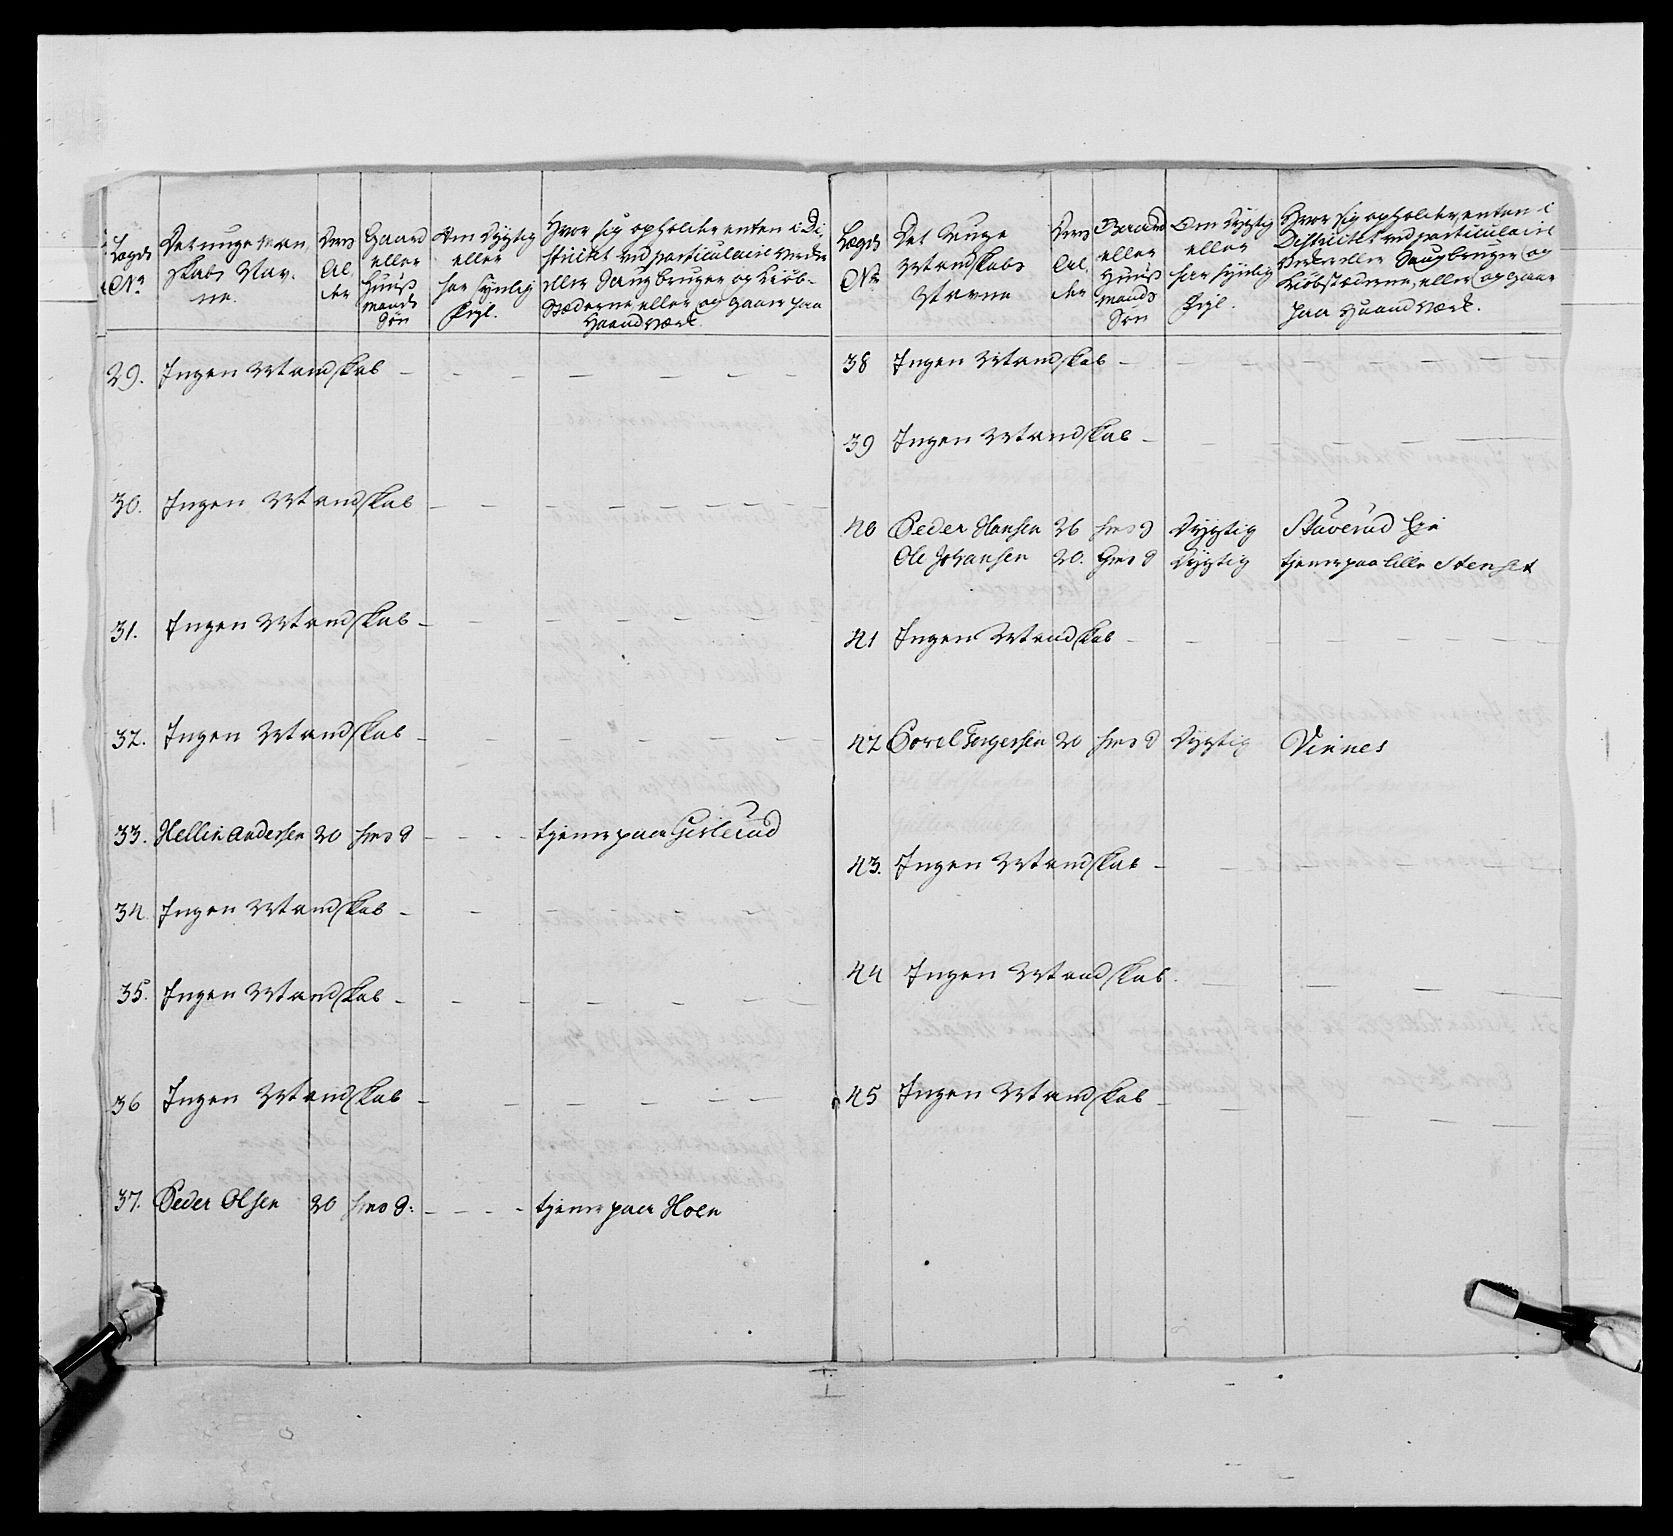 Lægds
No
Det unge Man
skabs Nav-
ne.
Deres
Al
der
Gaard
eller
Huus
mands
Søn
Om Dygtig
eller
har synlig
Fejl.
Hvor sig opholder enten i Di
strictet ved particulaire Verker
eller Saugbruger og Kiøb-
Stæderne, eller og gaar paa
Haandværk.
29. Ingen Mandskab - - - - - - -
30. Ingen Mandskab - - - - - - -
31. Ingen Mandskab - - - - - - -
32. Ingen Mandskab - - - - - - -
33. Hellik Andersen 20 hms S - - - - tjener paa
34. Ingen Mandskab - - -
35. Ingen Mandskab - - - - - - -
36 Ingen Mandskab - - - - - - -
37. Peder Olsen 20 hms S: - - - - tjener paa Hoen
Lægds
No
Det Unge
Mandskabs
Navne
Deres
Al
der
Gaard
eller
Huus
mands
Søn
Om Dygtig
eller
har synlig
Fejl.
Hvor sig opholder, enten i
Districtet ved particulaire
Verker eller Saugbruger og
Kiøbstæderne, eller og gaar
paa Haandværk.
38 Ingen Mandskab - - - - - - -
39 Ingen Mandskab - - - - - - -
40 Peder Hansen 26 hms S Dygtig Staverud
Ole Johansen 20. Gms S Dygtig tjener paa lille Stenset
41 Ingen Mandskab - - - - - - -
42 Povel Torgersen 20 hms S Dygtig Vinnes
43. Ingen Mandskab - - - - - - -
44 Ingen Mandskab. - - - -
45 Ingen Mandskab - - - - -